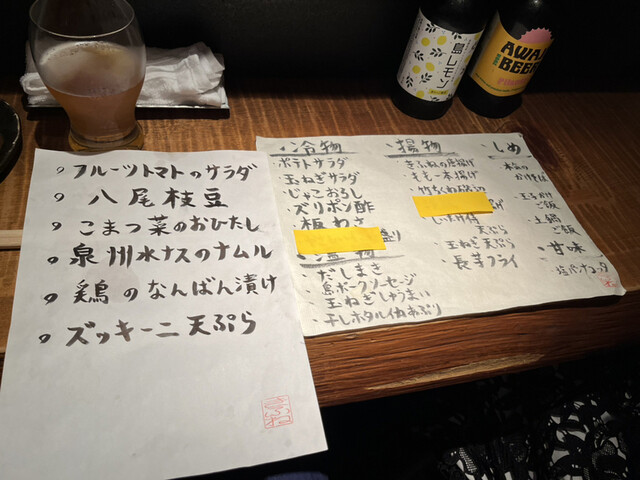 フルーツトマトのサラダ
八尾枝豆
こまつ菜のおひたし
泉州水ナスのナムル
鶏のなんばん漬け
ズッキーニ天ぷら
冷物
ポテトサラダ
玉ねぎサラダ
じゃこおろし
ズリポン酢
板わさ
盛り
温物
だしまき
島ポークソーセージ
玉ねぎしゅうまい
干しホタルイカあぶり
揚物
きふねの唐揚げ
もも一本揚げ
天ぷら
玉ねぎ天ぷら
長芋フライ
しめ
玉子かけ
ご飯
土鍋
ご飯
甘味
島レモン
AWAJI
BEER